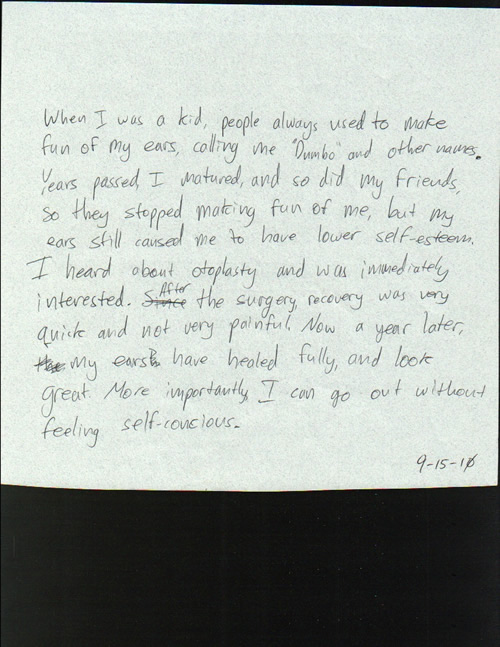 When I was a kid, people always used to make
fun of my ears, calling me "Dumbo" and other names.
Years passed, I matured, and so did my friends,
so they stopped making fun of me, but my
ears still caused me to have lower self-esteem.
I heard about otoplasty and was immediately
interested. After the surgery, recovery was very
quick and not very painful. Now a year later,
my ears have healed fully, and look
great. More importantly, I can go out without
feeling self-conscious.
9-15-10